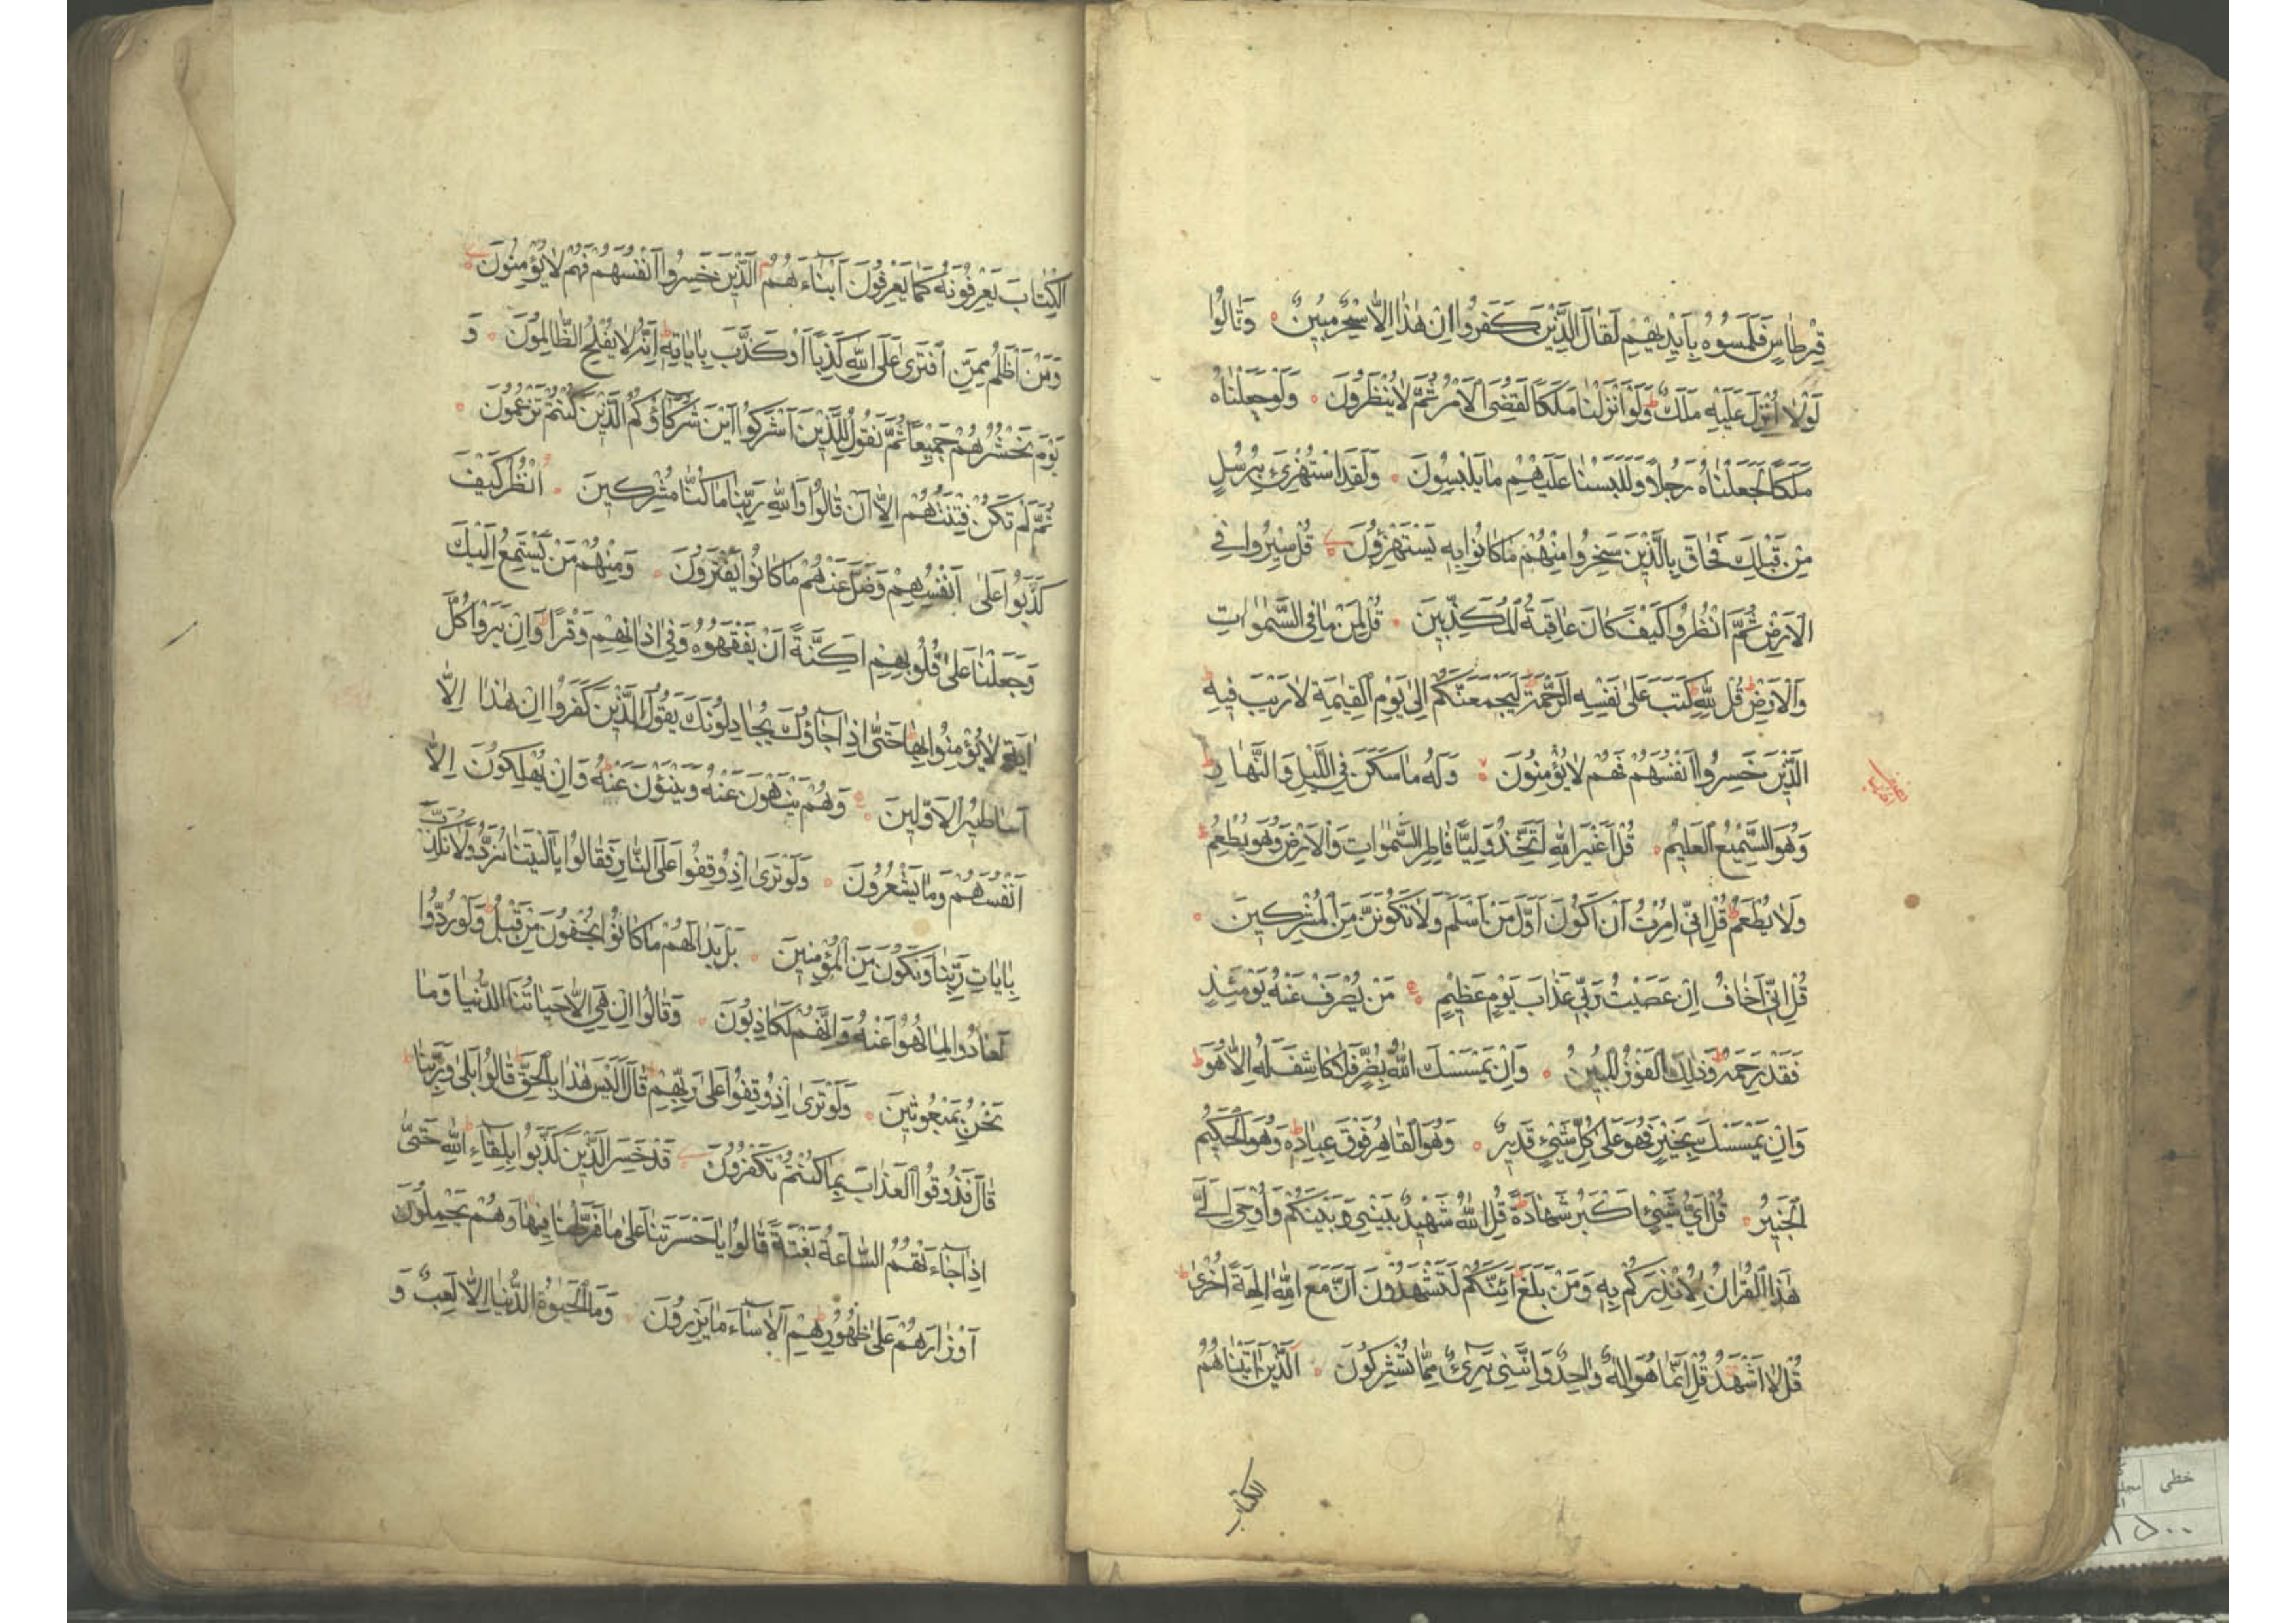 قِرْطَاسٍ فَلَمَسُوهُ بِاَيْدِيهِمْ لَقَالَ الَّذِينَ كَفَرُوا اِنْ هٰذَا اِلَّا سِحْرٌ مُبِينٌ وَقَالُوا
لَوْلَا اُنْزِلَ عَلَيْهِ مَلَكٌ وَلَوْ اَنْزَلْنَا مَلَكًا لَقُضِيَ الْاَمْرُ ثُمَّ لَا يُنْظَرُونَ وَلَوْ جَعَلْنَاهُ
مَلَكًا لَجَعَلْنَاهُ رَجُلًا وَلَلَبَسْنَا عَلَيْهِمْ مَا يَلْبِسُونَ وَلَقَدِ اسْتُهْزِئَ بِرُسُلٍ
مِنْ قَبْلِكَ فَحَاقَ بِالَّذِينَ سَخِرُوا مِنْهُمْ مَا كَانُوا بِهِ يَسْتَهْزِؤُنَ قُلْ سِيرُوا فِي
الْاَرْضِ ثُمَّ انْظُرُوا كَيْفَ كَانَ عَاقِبَةُ الْمُكَذِّبِينَ قُلْ لِمَنْ مَا فِي السَّمٰوَاتِ
وَالْاَرْضِ قُلْ لِلّٰهِ كَتَبَ عَلٰى نَفْسِهِ الرَّحْمَةَ لَيَجْمَعَنَّكُمْ اِلٰى يَوْمِ الْقِيٰمَةِ لَا رَيْبَ فِيهِ
الَّذِينَ خَسِرُوا اَنْفُسَهُمْ فَهُمْ لَا يُؤْمِنُونَ وَلَهُ مَا سَكَنَ فِي اللَّيْلِ وَالنَّهَارِ
وَهُوَ السَّمِيعُ الْعَلِيمُ قُلْ اَغَيْرَ اللّٰهِ اَتَّخِذُ وَلِيًّا فَاطِرِ السَّمٰوَاتِ وَالْاَرْضِ وَهُوَ يُطْعِمُ
وَلَا يُطْعَمُ قُلْ اِنِّي اُمِرْتُ اَنْ اَكُونَ اَوَّلَ مَنْ اَسْلَمَ وَلَا تَكُونَنَّ مِنَ الْمُشْرِكِينَ
قُلْ اِنِّي اَخَافُ اِنْ عَصَيْتُ رَبِّي عَذَابَ يَوْمٍ عَظِيمٍ مَنْ يُصْرَفْ عَنْهُ يَوْمَئِذٍ
فَقَدْ رَحِمَهُ وَذٰلِكَ الْفَوْزُ الْمُبِينُ وَاِنْ يَمْسَسْكَ اللّٰهُ بِضُرٍّ فَلَا كَاشِفَ لَهُ اِلَّا هُوَ
وَاِنْ يَمْسَسْكَ بِخَيْرٍ فَهُوَ عَلٰى كُلِّ شَيْءٍ قَدِيرٌ وَهُوَ الْقَاهِرُ فَوْقَ عِبَادِهِ وَهُوَ الْحَكِيمُ
الْخَبِيرُ قُلْ اَيُّ شَيْءٍ اَكْبَرُ شَهَادَةً قُلِ اللّٰهُ شَهِيدٌ بَيْنِي وَبَيْنَكُمْ وَاُوحِيَ اِلَيَّ
هٰذَا الْقُرْاٰنُ لِاُنْذِرَكُمْ بِهِ وَمَنْ بَلَغَ اَئِنَّكُمْ لَتَشْهَدُونَ اَنَّ مَعَ اللّٰهِ اٰلِهَةً اُخْرٰى
قُلْ لَا اَشْهَدُ قُلْ اِنَّمَا هُوَ اِلٰهٌ وَاحِدٌ وَاِنَّنِي بَرِيءٌ مِمَّا تُشْرِكُونَ اَلَّذِينَ اٰتَيْنَاهُمُ
الكتاب
الْكِتَابَ يَعْرِفُونَهُ كَمَا يَعْرِفُونَ اَبْنَاءَهُمْ اَلَّذِينَ خَسِرُوا اَنْفُسَهُمْ فَهُمْ لَا يُؤْمِنُونَ
وَمَنْ اَظْلَمُ مِمَّنِ افْتَرٰى عَلَى اللّٰهِ كَذِبًا اَوْ كَذَّبَ بِاٰيَاتِهِ اِنَّهُ لَا يُفْلِحُ الظَّالِمُونَ وَ
يَوْمَ نَحْشُرُهُمْ جَمِيعًا ثُمَّ نَقُولُ لِلَّذِينَ اَشْرَكُوا اَيْنَ شُرَكَاؤُكُمُ الَّذِينَ كُنْتُمْ تَزْعُمُونَ
ثُمَّ لَمْ تَكُنْ فِتْنَتُهُمْ اِلَّا اَنْ قَالُوا وَاللّٰهِ رَبِّنَا مَا كُنَّا مُشْرِكِينَ اُنْظُرْ كَيْفَ
كَذَبُوا عَلٰى اَنْفُسِهِمْ وَضَلَّ عَنْهُمْ مَا كَانُوا يَفْتَرُونَ وَمِنْهُمْ مَنْ يَسْتَمِعُ اِلَيْكَ
وَجَعَلْنَا عَلٰى قُلُوبِهِمْ اَكِنَّةً اَنْ يَفْقَهُوهُ وَفِي اٰذَانِهِمْ وَقْرًا وَاِنْ يَرَوْا كُلَّ
اٰيَةٍ لَا يُؤْمِنُوا بِهَا حَتّٰى اِذَا جَاؤُكَ يُجَادِلُونَكَ يَقُولُ الَّذِينَ كَفَرُوا اِنْ هٰذَا اِلَّا
اَسَاطِيرُ الْاَوَّلِينَ وَهُمْ يَنْهَوْنَ عَنْهُ وَيَنْئَوْنَ عَنْهُ وَاِنْ يُهْلِكُونَ اِلَّا
اَنْفُسَهُمْ وَمَا يَشْعُرُونَ وَلَوْ تَرٰى اِذْ وُقِفُوا عَلَى النَّارِ فَقَالُوا يَا لَيْتَنَا نُرَدُّ وَلَا نُكَذِّبَ
بِاٰيَاتِ رَبِّنَا وَنَكُونَ مِنَ الْمُؤْمِنِينَ بَلْ بَدَا لَهُمْ مَا كَانُوا يُخْفُونَ مِنْ قَبْلُ وَلَوْ رُدُّوا
لَعَادُوا لِمَا نُهُوا عَنْهُ وَاِنَّهُمْ لَكَاذِبُونَ وَقَالُوا اِنْ هِيَ اِلَّا حَيَاتُنَا الدُّنْيَا وَمَا
نَحْنُ بِمَبْعُوثِينَ وَلَوْ تَرٰى اِذْ وُقِفُوا عَلٰى رَبِّهِمْ قَالَ اَلَيْسَ هٰذَا بِالْحَقِّ قَالُوا بَلٰى وَرَبِّنَا
قَالَ فَذُوقُوا الْعَذَابَ بِمَا كُنْتُمْ تَكْفُرُونَ قَدْ خَسِرَ الَّذِينَ كَذَّبُوا بِلِقَاءِ اللّٰهِ حَتّٰى
اِذَا جَاءَتْهُمُ السَّاعَةُ بَغْتَةً قَالُوا يَا حَسْرَتَنَا عَلٰى مَا فَرَّطْنَا فِيهَا وَهُمْ يَحْمِلُونَ
اَوْزَارَهُمْ عَلٰى ظُهُورِهِمْ اَلَا سَاءَ مَا يَزِرُونَ وَمَا الْحَيٰوةُ الدُّنْيَا اِلَّا لَعِبٌ وَ
خطی